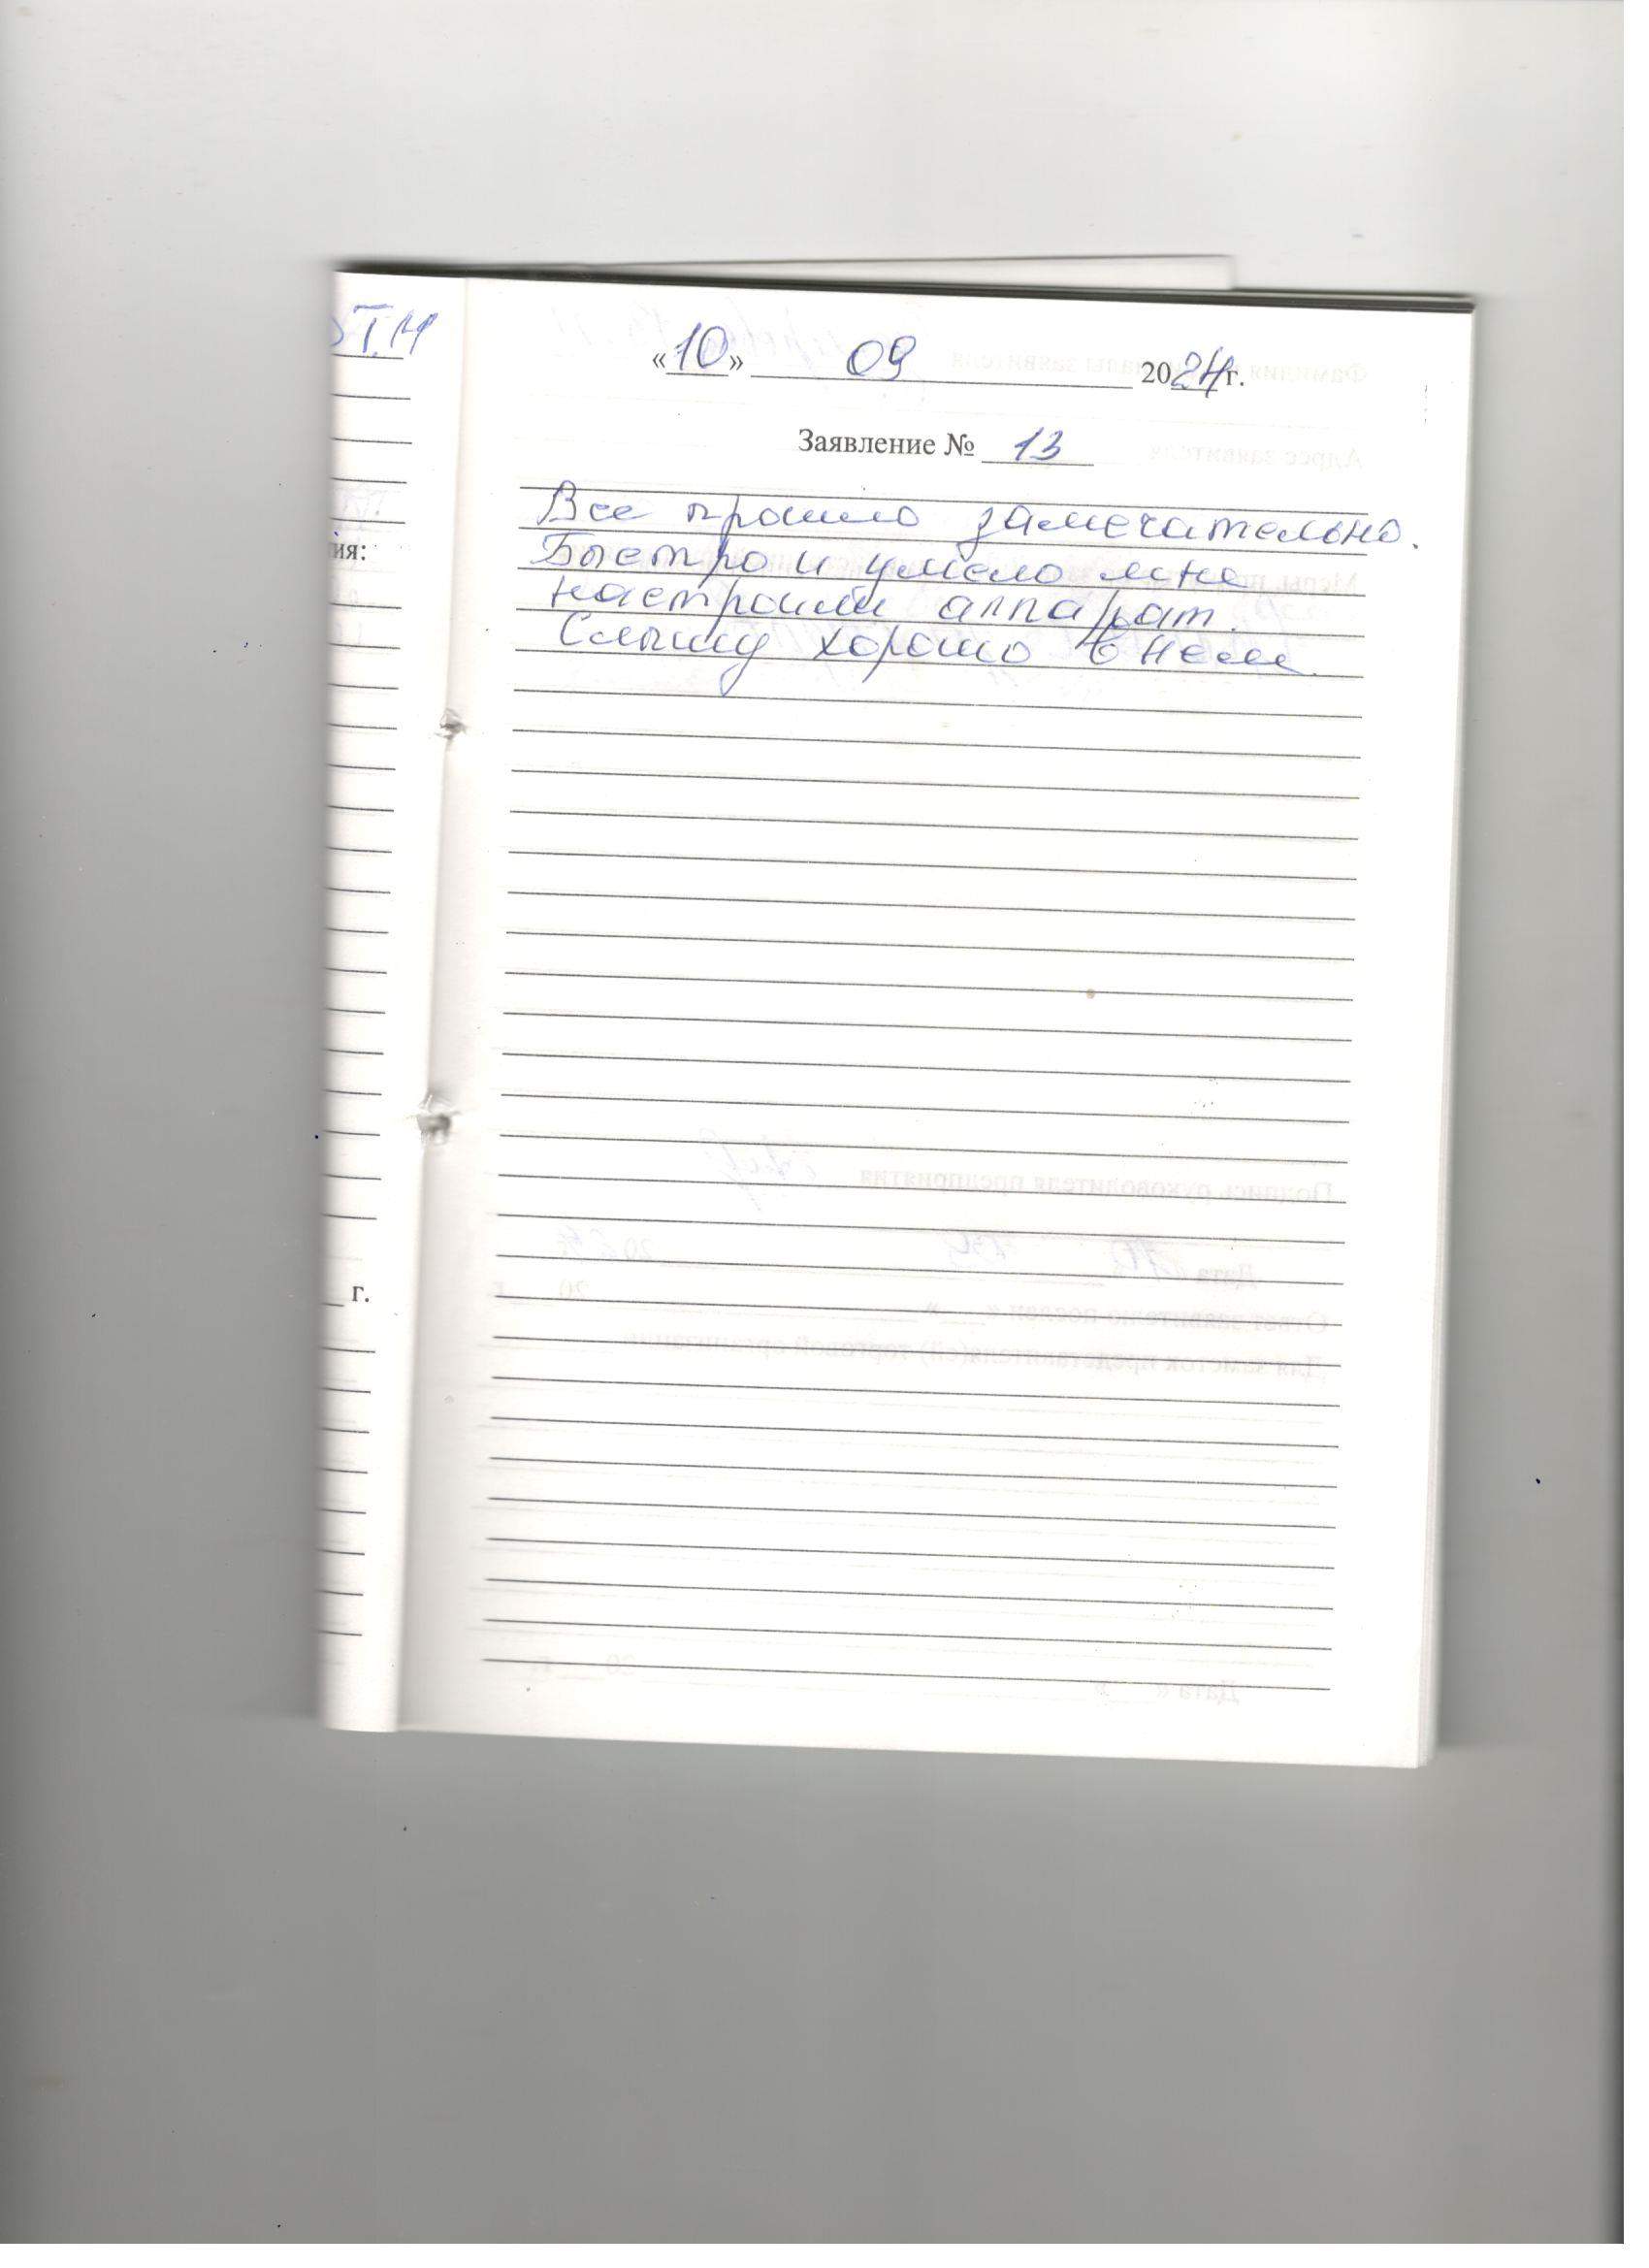 Т.М
«10» 09 2024г.
Заявление № 13
Все прошло замечательно.
Быстро и умело мне
ия:
настроили аппарат.
Слышу хорошо в нем.
г.